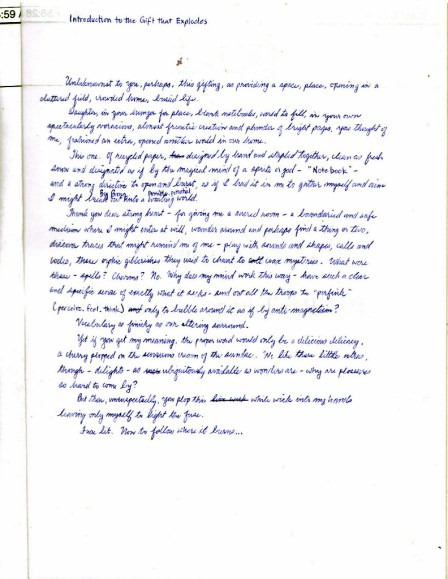 :59
Introduction to the Gift that Explodes
Unbeknownst to you, perhaps, this gifting, as providing a space, place, opening in a
cluttered field, crowded home, busied life.
Daughter, in your hunger for place, blank notebooks, world to fill, in your own
spectacularly voracious, almost frenetic creation and plunder of bright pages, you thought of
me, fashioned an extra, opened another world in our home.
This one. Of recycled paper, designed by hand and stapled together, clean as fresh
snow and designated as if by the magical mind of a sprite or god - "Note book" -
and a strong directive to open and burst, as if I had it in me to gather myself and
I might Big Bang into a world.
Thank you dear strong heart - for giving me a sacred room - a boundaried and safe
museum where I might enter at will, wander around and perhaps find a thing or two,
discover traces that might remind me of me - play with sounds and shapes, calls and
these they used to chant to coax mysteries. What were
these - spells? Charms? No. Why does my mind work this way - have such a clear
and specific sense of exactly what it seeks - send out all the troops to "perfink"
(perceive, feel, think) only to bubble around it as if by anti-magnetism?
Vocabulary as finicky as our utterings surround.
Yet if you get my meaning, the proper word would only be a delicious delicacy,
a cherry plopped on the cream of the sundae. No, like these little notes,
though - delights - as ubiquitously available as wonders are - why are pleasures
so hard to come by?
But then, unexpectedly, you plop this white wick into my hands
leaving only myself to light the fuse.
Fuse lit. Now to follow where it burns...